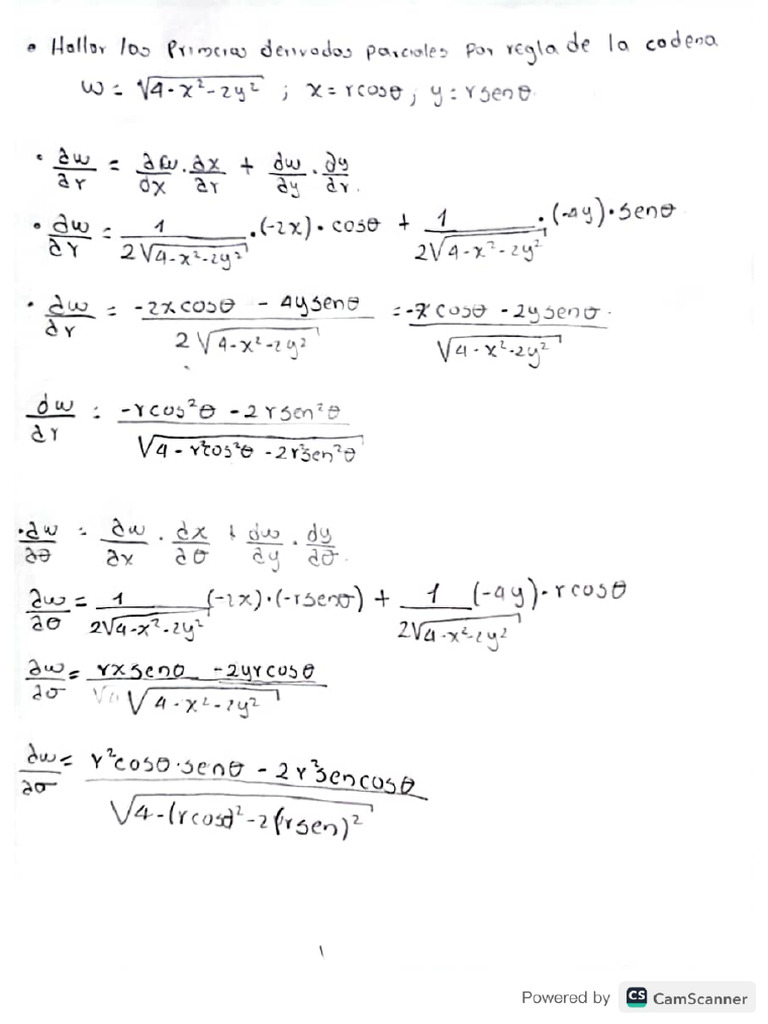 • Hallar las Primeras derivadas parciales por regla de la cadena
w = √(4-x²-2y²) ; x = rcosθ ; y = rsenθ
• ∂w/∂r = ∂w/∂x · ∂x/∂r + ∂w/∂y · ∂y/∂r.
• ∂w/∂r = 1/(2√(4-x²-2y²)) · (-2x) · cosθ + 1/(2√(4-x²-2y²)) · (-4y) · senθ
• ∂w/∂r = (-2xcosθ - 4ysenθ)/(2√(4-x²-2y²)) = (-xcosθ - 2ysenθ)/√(4-x²-2y²)
∂w/∂r = (-rcos²θ - 2rsen²θ)/√(4-r²cos²θ - 2r²sen²θ)
• ∂w/∂θ = ∂w/∂x · ∂x/∂θ + ∂w/∂y · ∂y/∂θ.
∂w/∂θ = 1/(2√(4-x²-2y²)) (-2x)·(-rsenθ) + 1/(2√(4-x²-2y²)) (-4y)·rcosθ
∂w/∂σ = (rxsenθ - 2yrcosθ)/√(4-x²-2y²)
∂w/∂σ = (r²cosθ·senθ - 2r²sencosθ)/√(4-(rcosθ)²-2(rsen)²)
Powered by CS CamScanner